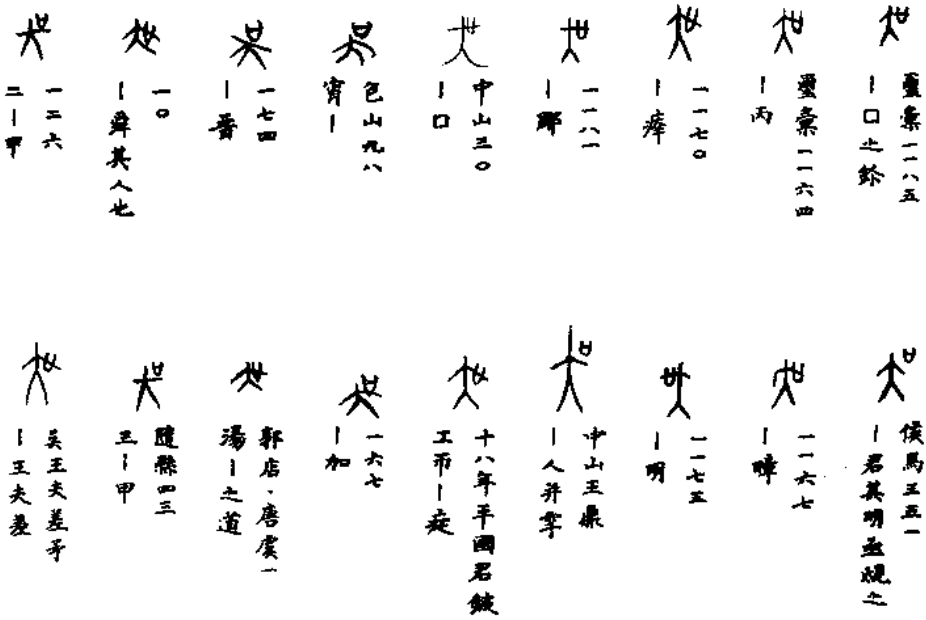 璽彙一一八五
丨口之鉨
璽彙一一六四
丨丙
一一七〇
丨瘁
一一八一
丨
中山三〇
丨口
包山九八
宵丨
一七四
丨晉
一〇
丨舜其人也
一二六
二丨甲
侯馬三五一
丨君其明亟覞之
一一六七
丨
一一七五
丨明
中山王鼎
丨人并雩
十八年平國君鈹
工帀丨疰
一六七
丨加
郭店·唐虞一
湯丨之道
隨縣四三
三丨甲
吳王夫差矛
丨王夫差